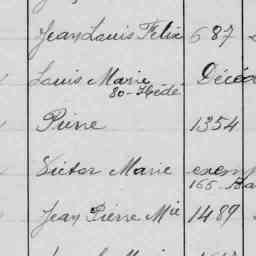 Jean Louis Félix 687
Louis Marie Décéd
80-Hédé
Pierre 1354
Victor Marie exem
166
Jean Pierre Mie 1489